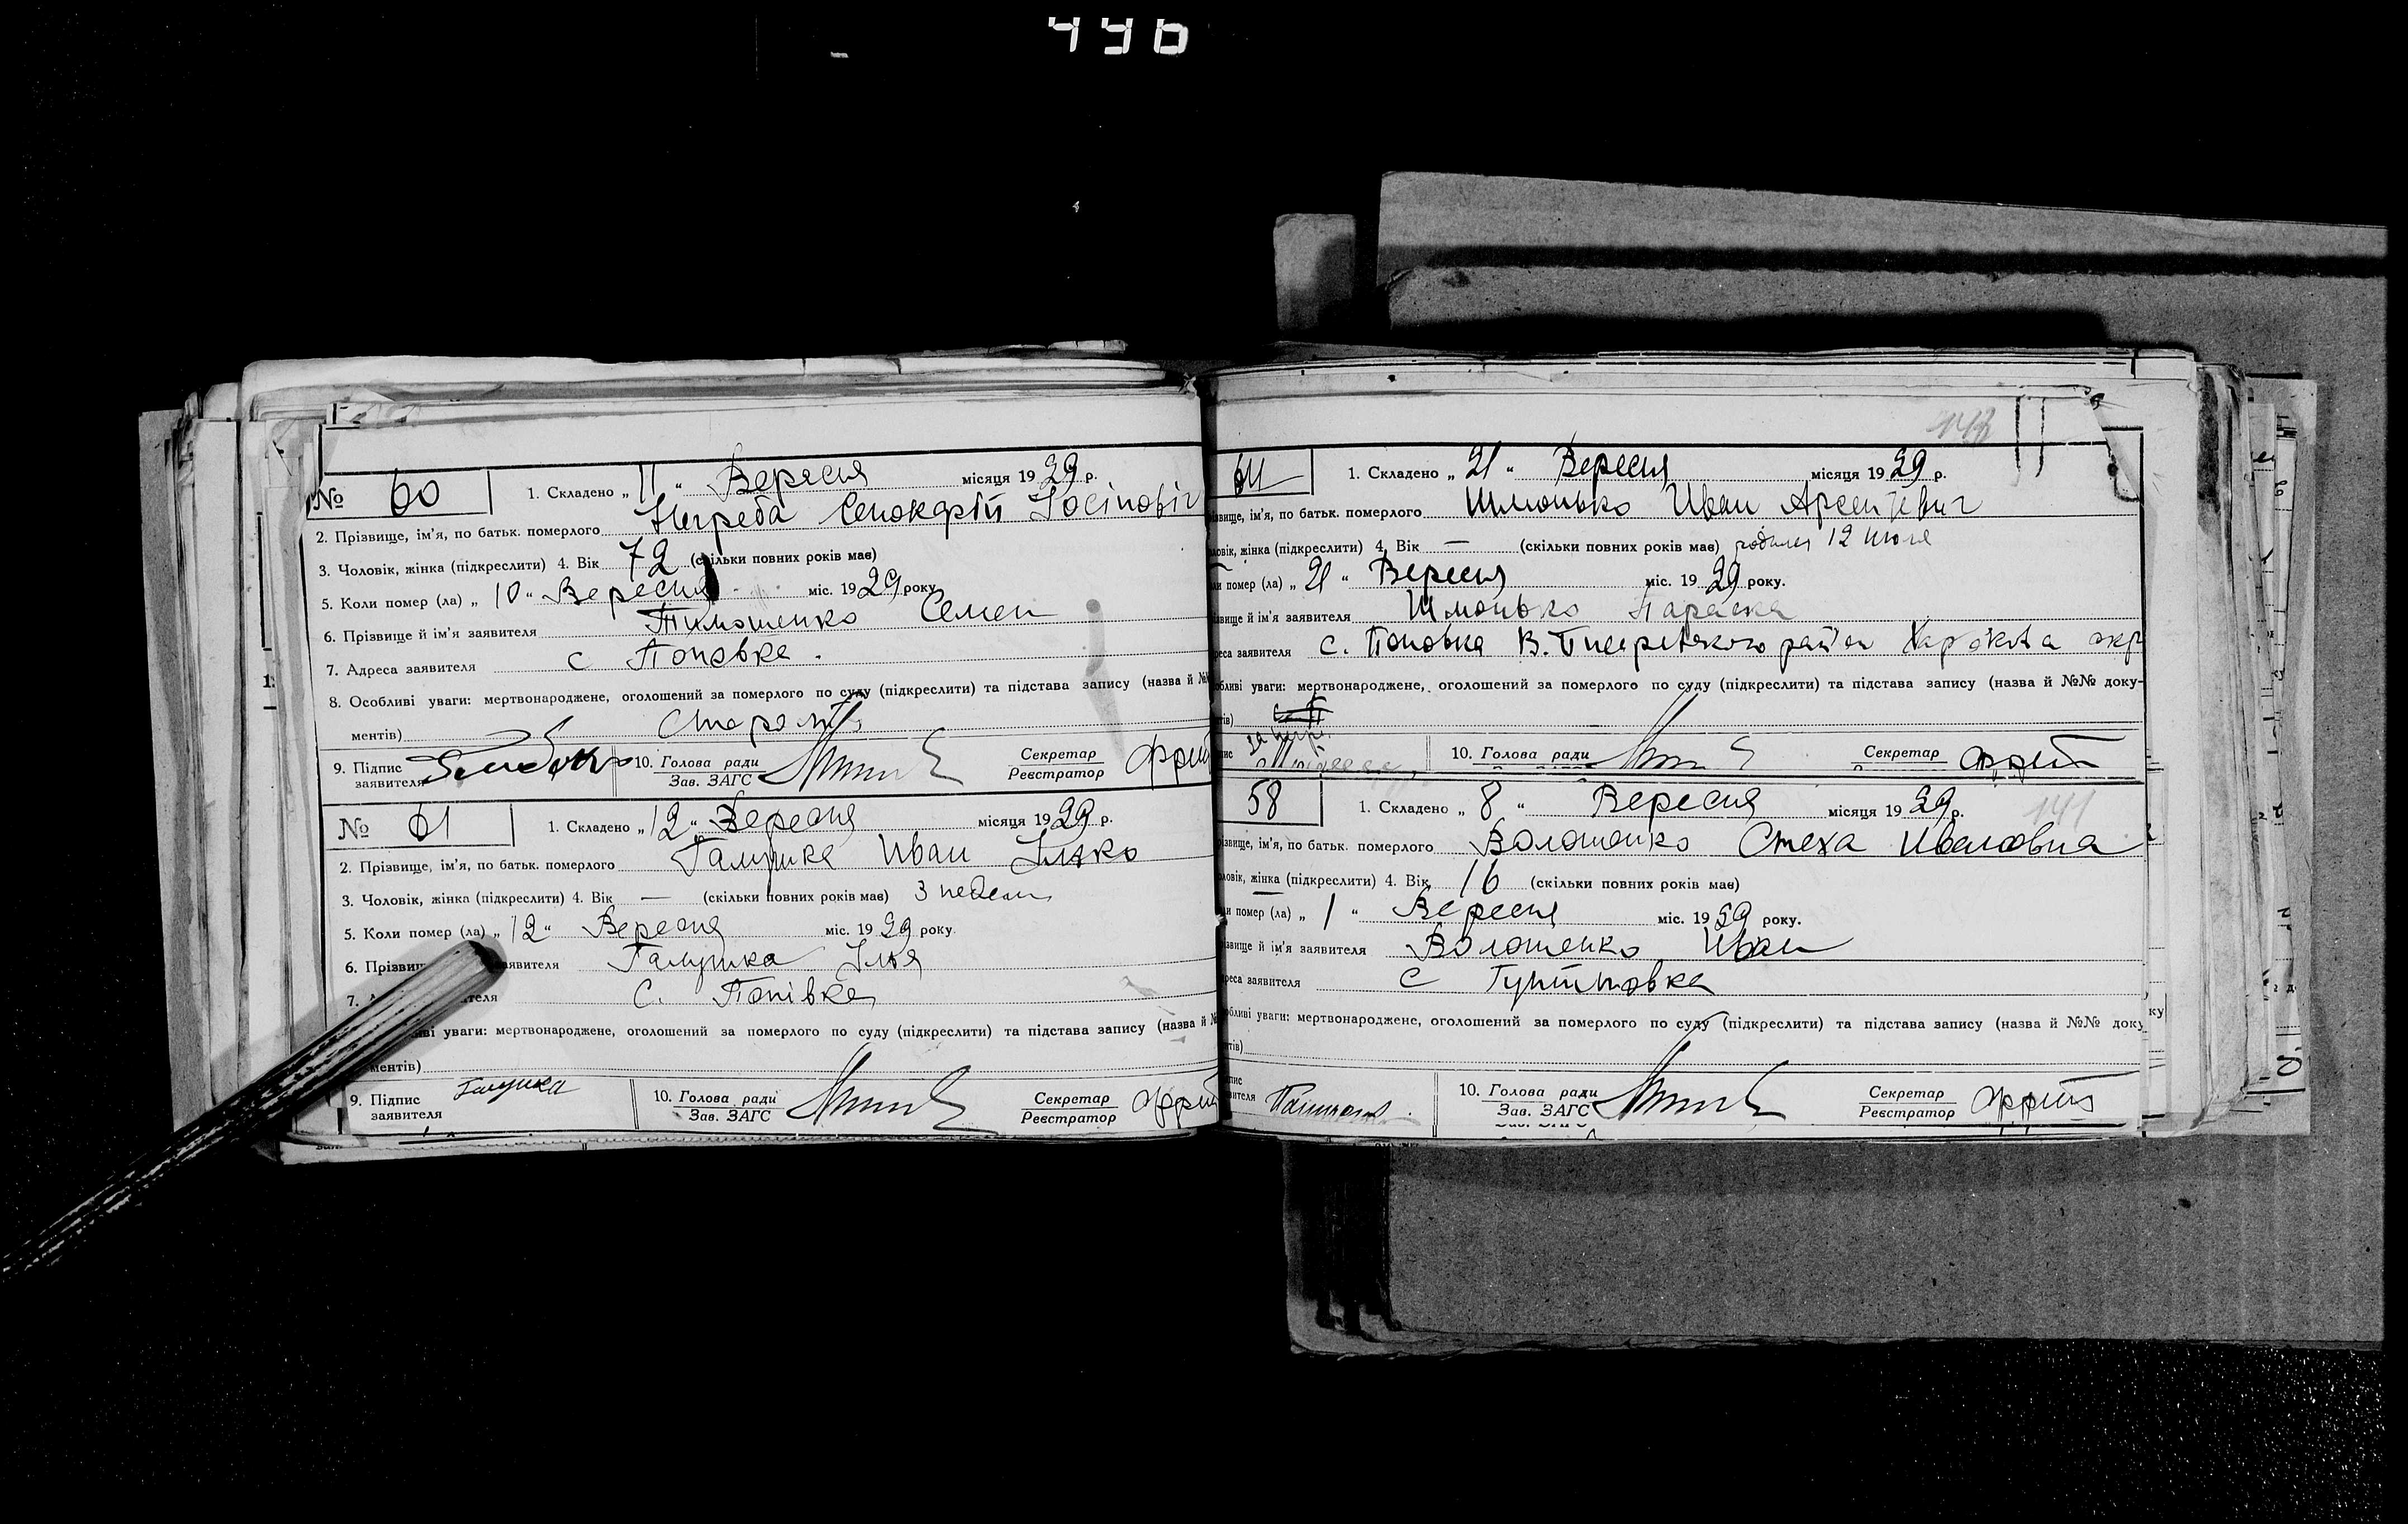 446
№ 60 1. Складено „ 11 “ Вересня місяця 1929 р.
2. Прізвище, ім'я, по батьк. померлого Негреба
3. Чоловік, жінка (підкреслити) 4. Вік 72 (скільки повних років має)
5. Коли помер (ла) „ 10 “ Вересня міс. 1929 року
6. Прізвище й ім'я заявителя Тимошенко Семен
7. Адреса заявителя с Попівка.
8. Особливі уваги: мертвонароджене, оголошений за померлого по суду (підкреслити) та підстава запису (назва й №
ментів)
9. Підпис заявителя 10. Голова ради Зав. ЗАГС Секретар Реєстратор
№ 61 1. Складено „ 12 “ Вересня місяця 1929 р.
2. Прізвище, ім'я, по батьк. померлого Галушка Иван Ілько
3. Чоловік, жінка (підкреслити) 4. Вік — (скільки повних років має) 3 недели
5. Коли помер (ла) „ 12 “ Вересня міс. 1929 року
6. Прізвищ аявителя Галушка Ілья
7. теля С. Попівка
ві уваги: мертвонароджене, оголошений за померлого по суду (підкреслити) та підстава запису (назва й №
ментів)
9. Підпис заявителя Галушка 10. Голова ради Зав. ЗАГС Секретар Реєстратор
64 1. Складено „ 21 “ Вересня місяця 1929 р.
звище, ім'я, по батьк. померлого Шмонько Иван Арсентьевич
ловік, жінка (підкреслити) 4. Вік — (скільки повних років має) родился 12 июля
ли помер (ла) „ 21 “ Вересня міс. 1929 року.
звище й ім'я заявителя Шмонько Параска
реса заявителя с. Поповка В. района окр
обливі уваги: мертвонароджене, оголошений за померлого по суду (підкреслити) та підстава запису (назва й №№ доку-
тів)
10. Голова ради Секретар
58 1. Складено „ 8 “ Вересня місяця 1929 р. 141
різвище, ім'я, по батьк. померлого Волошенко Стеха Ивановна
ловік, жінка (підкреслити) 4. Вік 16 (скільки повних років має)
ли помер (ла) „ 1 “ Вересня міс. 1929 року.
різвище й ім'я заявителя Волошенко Иван
реса заявителя с
обливі уваги: мертвонароджене, оголошений за померлого по суду (підкреслити) та підстава запису (назва й №№ доку
тів)
10. Голова ради Зав. ЗАГС Секретар Реєстратор